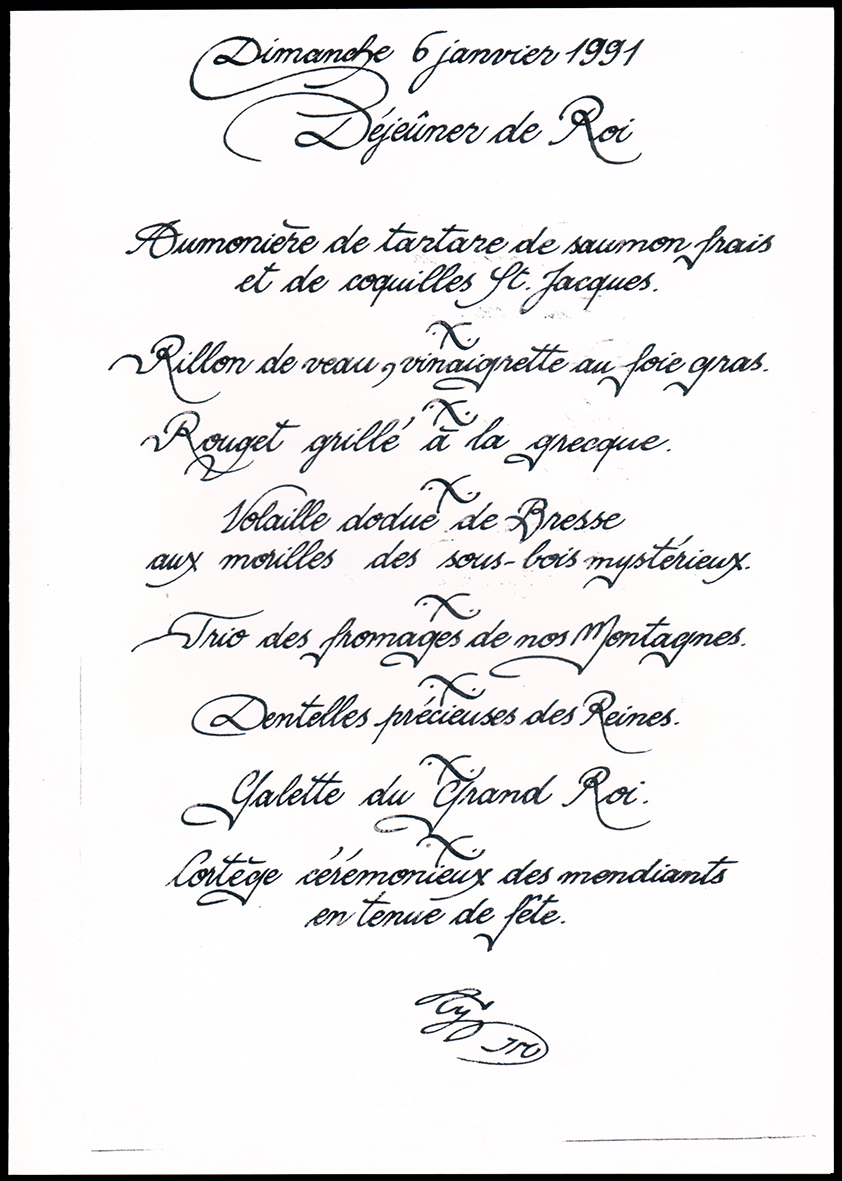 Dimanche 6 janvier 1991
Déjeûner de Roi
Aumonière de tartare de saumon frais
et de coquilles St. Jacques.
.X.
Rillon de veau, vinaigrette au foie gras.
.X.
Rouget grillé à la grecque.
.X.
Volaille dodue de Bresse
aux morilles des sous-bois mystérieux.
.X.
Trio des fromages de nos Montagnes.
.X.
Dentelles précieuses des Reines.
.X.
Galette du Grand Roi.
.X.
Cortège cérémonieux des mendiants
en tenue de fête.